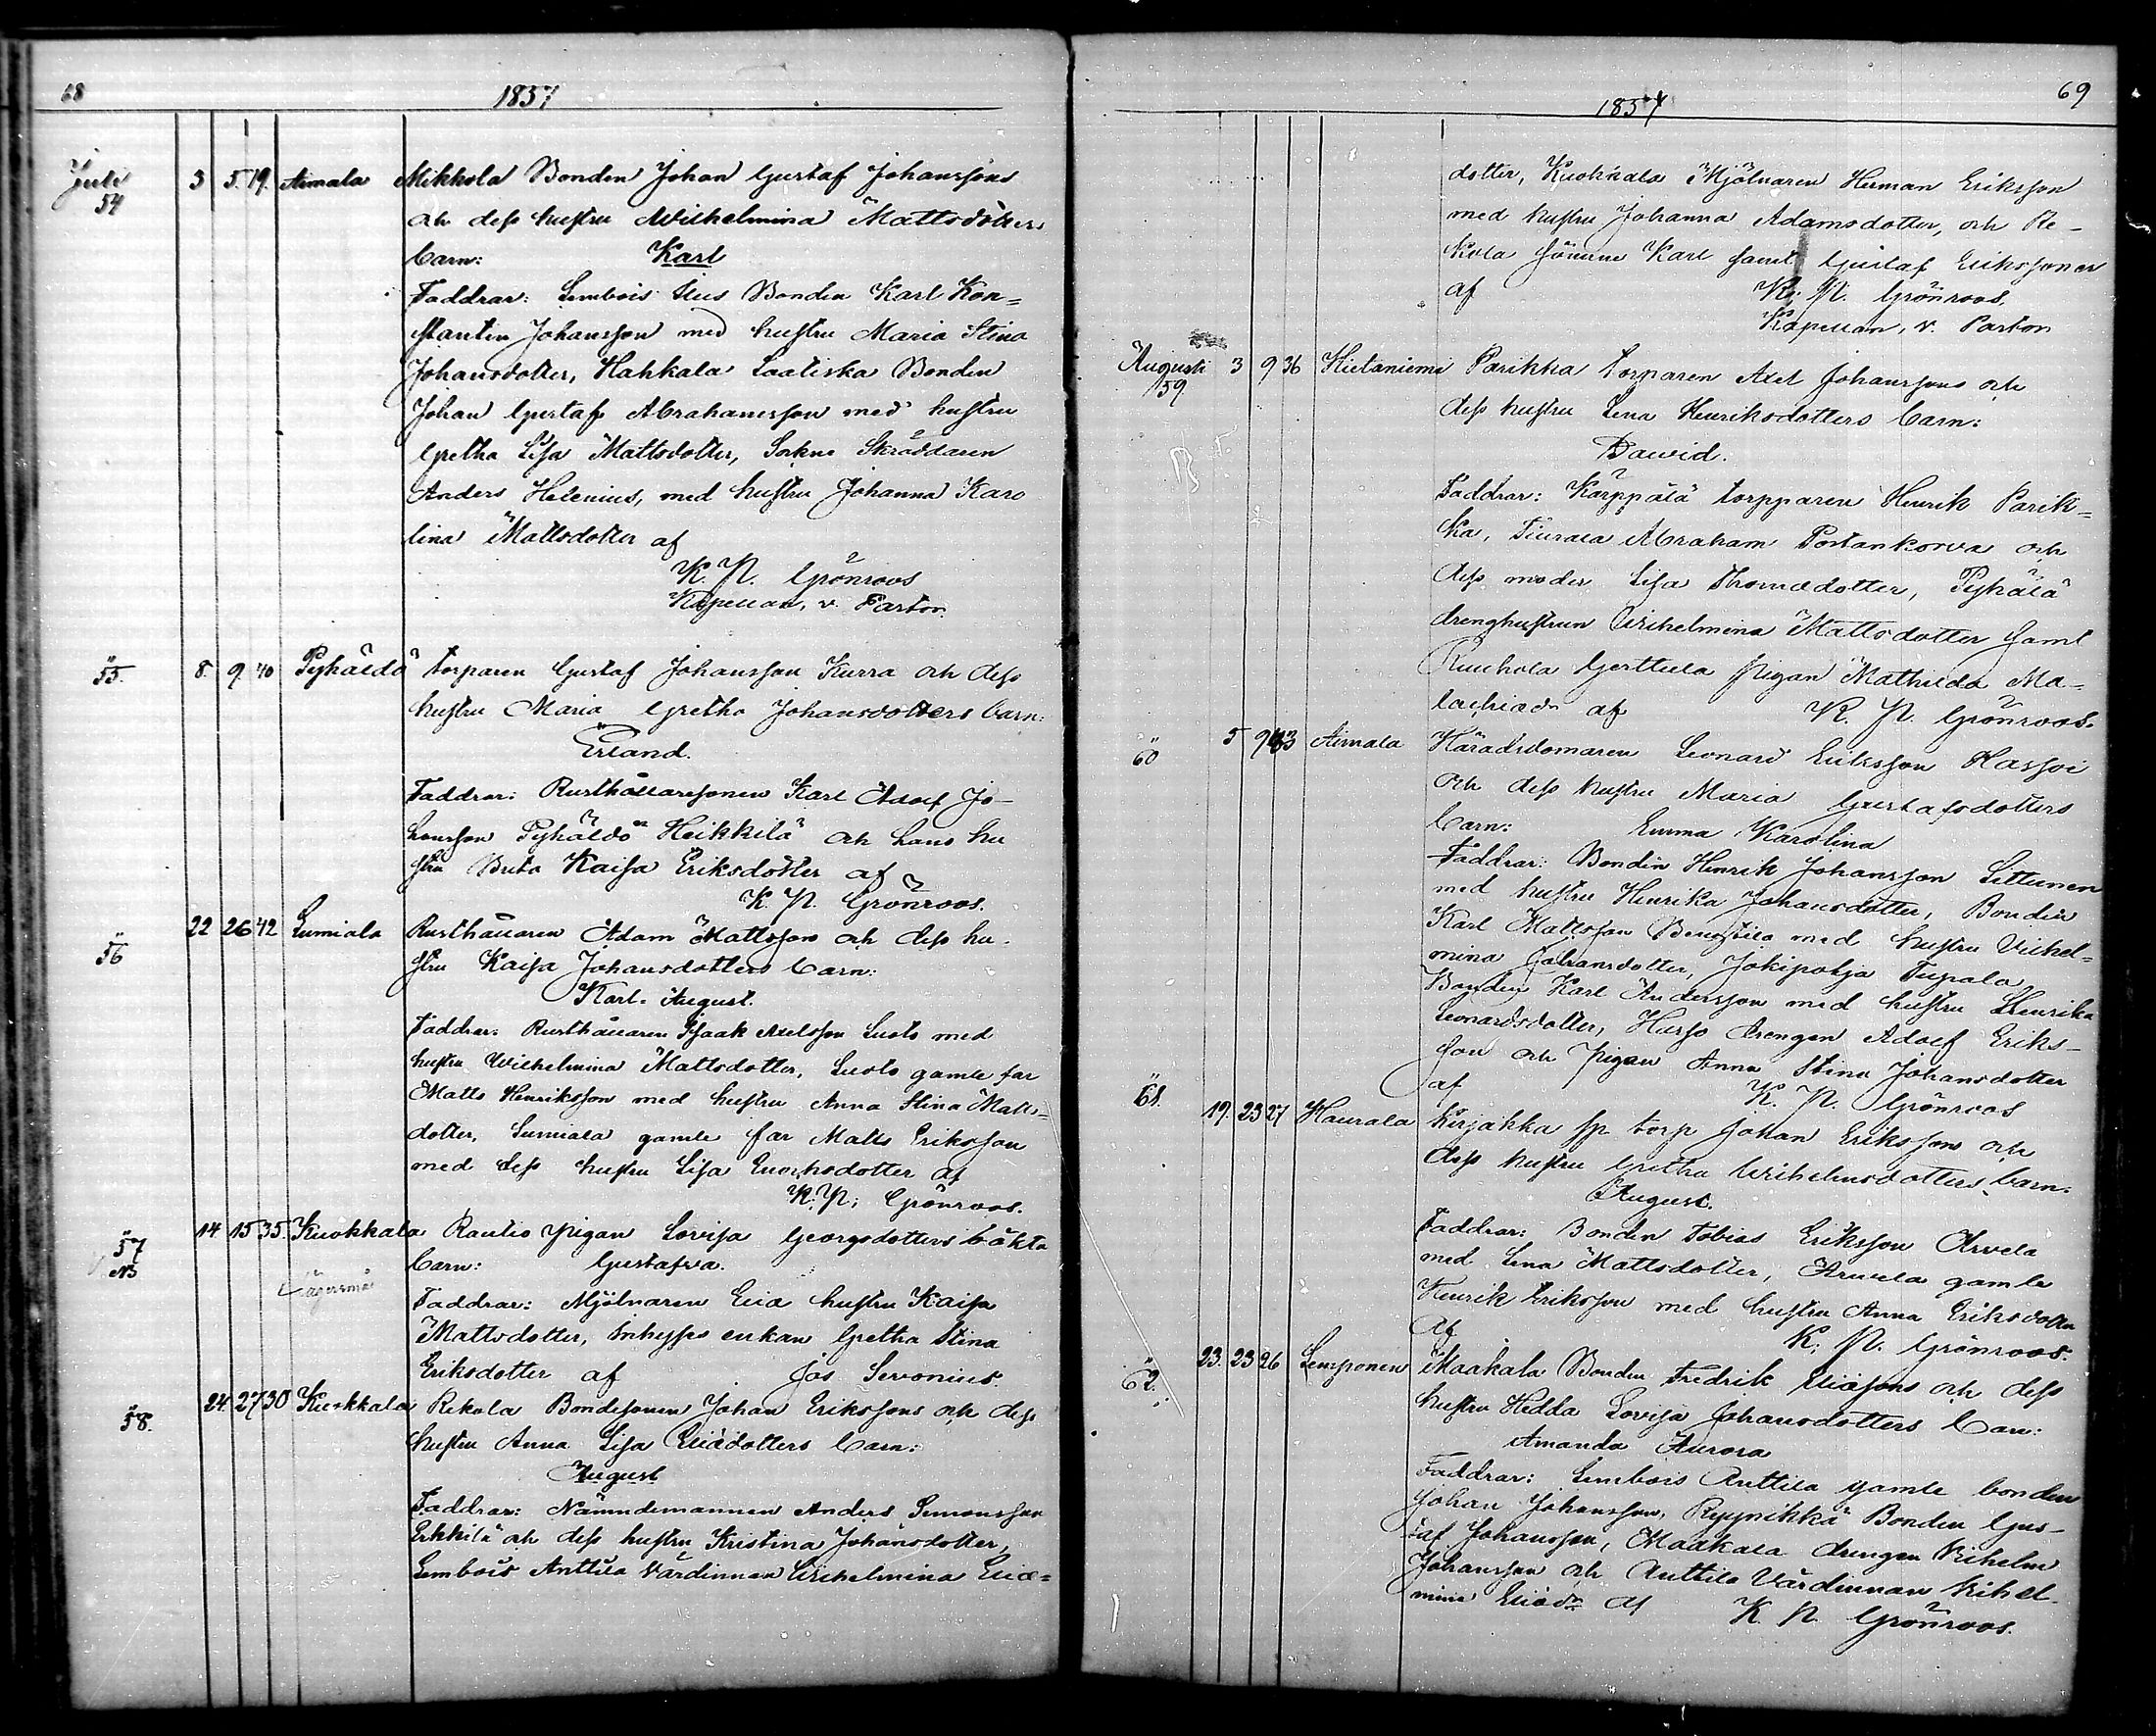 68
1857
Juli 54 3 5. 19. Aimala Mikkola Bonden Johan Gustaf Johanssons
och dess hustru Wilhelmina Mattsdotters
barn: Karl
Faddrar: Lembois Bonden Karl Kon=
stantin Johansson med hustru Maria Stina
Johansdotter, Hahkala Laatiska Bonden
Johan Gustaf Abrahamsson med hustru
Gretha Lisa Mattsdotter, Sockne Skräddaren
Anders Helenius, med hustru Johanna Karo
lina Mattsdotter af
K. N. Grönroos
Kapellan, v. Pastor.
" 55. 8. 9. 40 Pyhäldö torparen Gustaf Johansson Kurra och dess
hustru Maria Gretha Johansdotters barn:
Erland.
Faddrar: Rusthållaresonen Karl Adolf Jo-
hansson Pyhäldö Heikkilä och hans hu
stru Brita Kaisa Eriksdotter af
K. N. Grönroos.
" 56 22 26 42 Lumiala Rusthållaren Adam Mattsson och dess hu-
stru Kaisa Johansdotters barn:
Karl August.
Faddrar: Rusthållaren Isaak Axelsson Susto med
hustru Wilhelmina Mattsdotter, Susto gamle far
Matts Henriksson med hustru Anna Stina Matts=
dotter, Lumiala gamle far Matts Eriksson
med dess hustru Lisa Enochsdotter af
K. N. Grönroos.
" 57 N3 14 15 35. Kuokkala Rautio pigan Lovisa Georgsdotters oäkta
Lägersmå
barn: Gustafva.
Faddrar: Mjölnaren Eliæ hustru Kaisa
Mattsdotter, Inhyses enkan Gretha Stina
Eriksdotter af Jos Servonius.
" 58. 24 27 30 Kuokkala Rekola Bondesonen Johan Erikssons och dess
hustru Anna Lisa Eliædotters barn:
August
Faddrar: Nämndemannen Anders Simonsson
Erkkilä och dess hustru Kristina Johansdotter,
Lembois Anttila Värdinnan Wilhelmina Eliæ=
69
1857
dotter, Kuokkala Mjölnaren Herman Eriksson
med hustru Johanna Adamsdotter, och Re-
kola sönerne Karl samt Gustaf Erikssöner
af K. N. Grönroos.
Kapellan, v. Pastor
Augusti 59 3 9 36 Hietaniemi Parikka torparen Axel Johanssons och
dess hustru Lena Henriksdotters barn:
Dawid.
Faddrar: Karppälä torpparen Henrik Parik=
ka, Tiurala Abraham Portankorva och
dess moder Lisa Thomædotter, Pyhälä
drenghustrun Wilhelmina Mattsdotter samt
Ruuhola Gerttula pigan Mathilda Ma-
lachiædr af K. N. Grönroos.
" 60 5 9 43 Aimala Häradsdomaren Leonard Eriksson Hassoi
och dess hustru Maria Gustafsdotters
barn: Emma Karolina
Faddrar: Bonden Henrik Johansson Littunen
med hustru Henrika Johansdotter, Bonden
Karl Mattsson Benttilä med hustru Vilhel=
mina Johansdotter, Jokipohja Tupala
Bonden Karl Andersson med hustru Henrika
Leonardsdotter, Hasso drengen Adolf Eriks-
son och pigan Anna Stina Johansdotter
af K. N. Grönroos
" 61. 19. 23 27 Haurala Kirjakka sp. torp Johan Erikssons och
dess hustru Gretha Wilhelmsdotters barn:
August.
Faddrar: Bonden Tobias Eriksson Arvela
med Lena Mattsdotter, Arvela gamle
Henrik Eriksson med hustru Anna Eriksdotter
af K. N. Grönroos.
" 62. 23. 23 26 Lemponen Maakala Bonden Fredrik Eliæsons och dess
hustru Hedda Lovisa Johansdotters barn:
Amanda Aurora
Faddrar: Lembois Anttila gamle bonden
Johan Johansson, Reynikkä Bonden Gus-
taf Johansson, Maakala drengen Vilhelm
Johansson och Anttila Värdinnan Vilhel-
mina Eliædr af K. N. Grönroos.